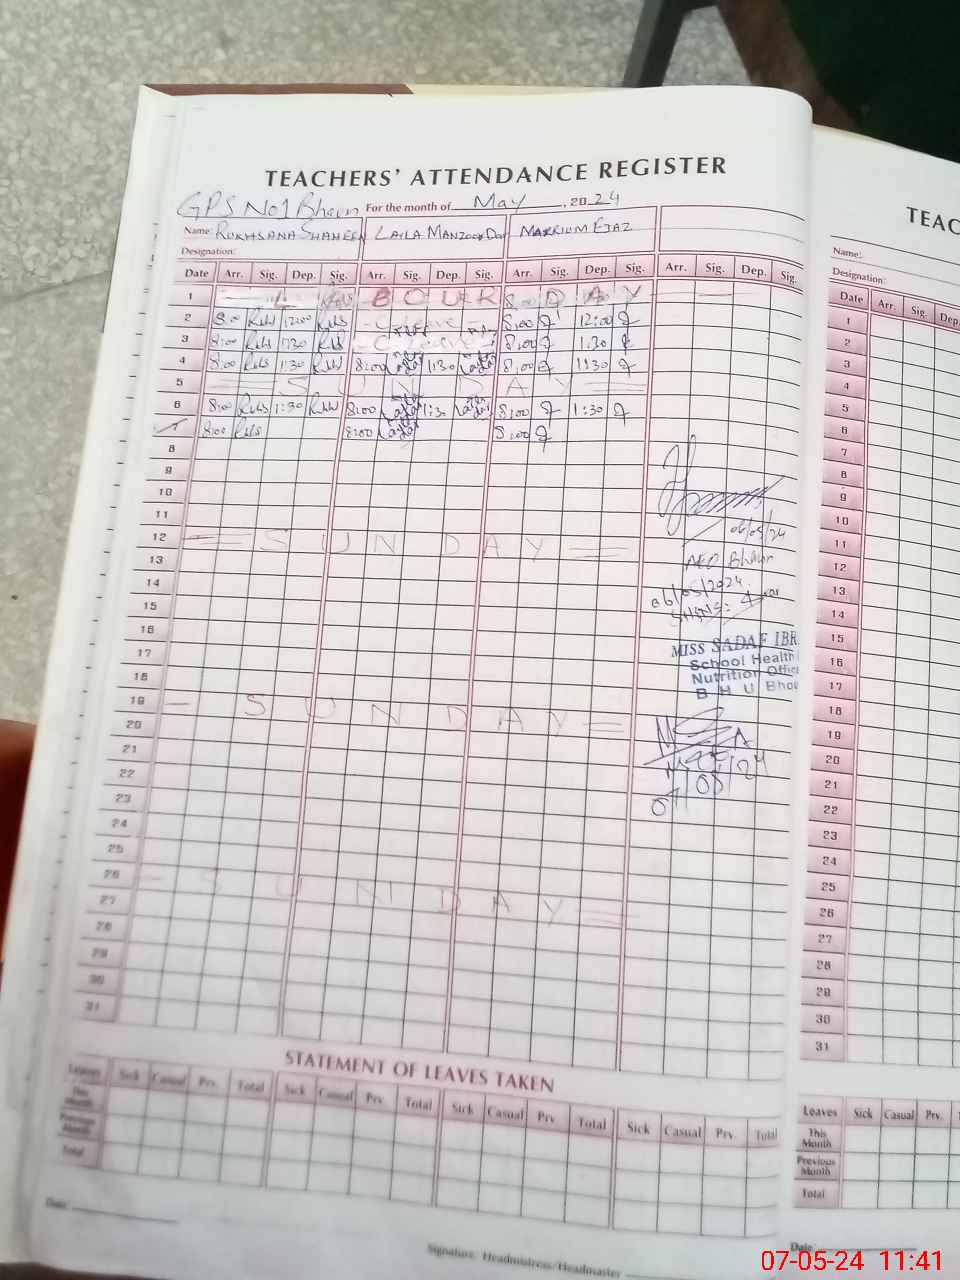 TEACHERS' ATTENDANCE REGISTER
GPS No1 Bhaun For the month of May, 2024
Name: RUKHSANA SHAHEEN LAILA MANZOOR MARRIUM EJAZ
Designation:
Date Arr. Sig. Dep. Sig. Arr. Sig. Dep. Sig. Arr. Sig. Dep. Sig. Arr. Sig. Dep. Sig.
1 L A B O U R D A Y
2 8:00 12:00 C leave 8:00 12:00
3 8:00 1:30 C leave 8:00 1:30
4 8:00 1:30 8:00 1:30 8:00 1:30
5 S U N D A Y
6 8:00 1:30 8:00 1:30 8:00 1:30
7 8:00 8:00 8:00
8
9
10
11
12 S U N D A Y
13
14
15
16
17
18
19 S U N D A Y
20
21
22
23
24
25
26 S U N D A Y
27
28
29
30
31
06/05/24
AEO Bhaun
06/05/2024
MISS SADAF IBR
School Health
Nutrition Office
B H U Bhou
MEA
07/05/24
STATEMENT OF LEAVES TAKEN
Leaves Sick Casual Prv. Total Sick Casual Prv. Total Sick Casual Prv Total Sick Casual Prv. Total
This Month
Previous Month
Total
Date:
Signature: Headmistress/Headmaster
TEAC
Name:
Designation:
Date Arr. Sig. Dep.
1
2
3
4
5
6
7
8
9
10
11
12
13
14
15
16
17
18
19
20
21
22
23
24
25
26
27
28
29
30
31
Leaves Sick Casual Prv.
This Month
Previous Month
Total
Date:
07-05-24 11:41